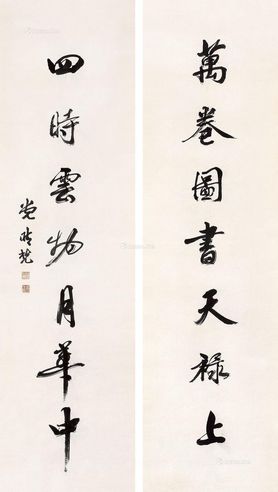 萬卷圖書天祿上
四時雲物月華中
党晴梵